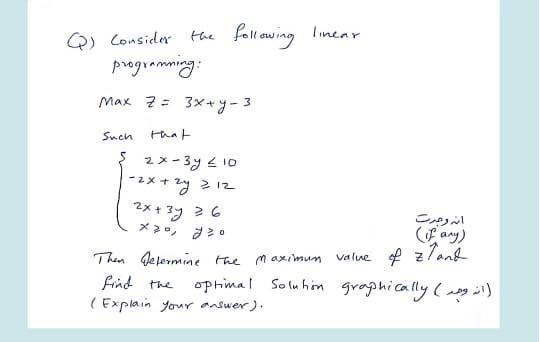 Q) Consider the following linear
programming:
Max Z = 3x+y-3
Such that
2x-3y ≤ 10
-2x+2y ≥ 12
2x+3y ≥ 6
x≥0, y≥0
ان وجدت
(if any)
Then determine the maximum value of z↑and
find the optimal Soluhion graphically (ان وجد)
(Explain your answer).